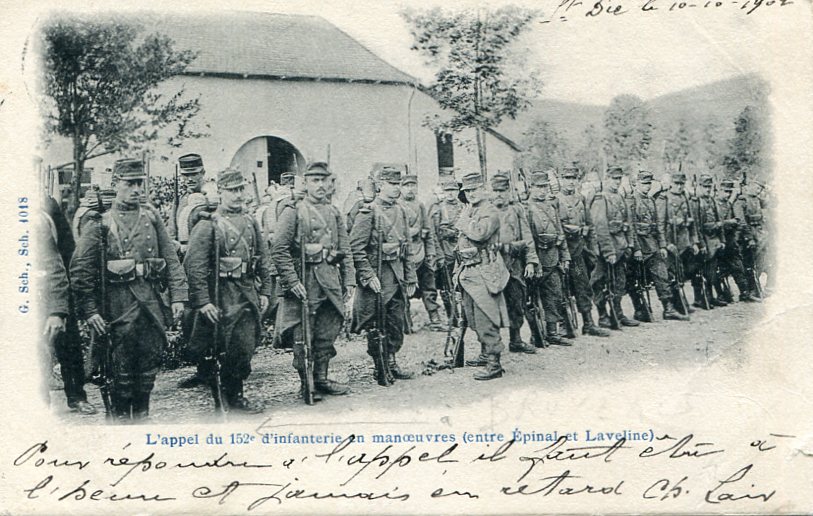 St Die le 10-10-1902
G. Sch., Sch. 1018
L'appel du 152e d'infanterie en manœuvres (entre Épinal et Laveline)
Pour répondre à l'appel il faut être à
l'heure et jamais en retard Ch. Lair